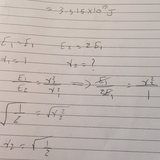 = 3.315×10 J
E₁ = E₁ E₂ = 2E₁
r₁ = 1 r₂ = ?
E₁/E₂ = r₂²/r₁² ⟹ E₁/2E₁ = r₂²/1
√(1/2) = √r₂²
r₂ = √(1/2)